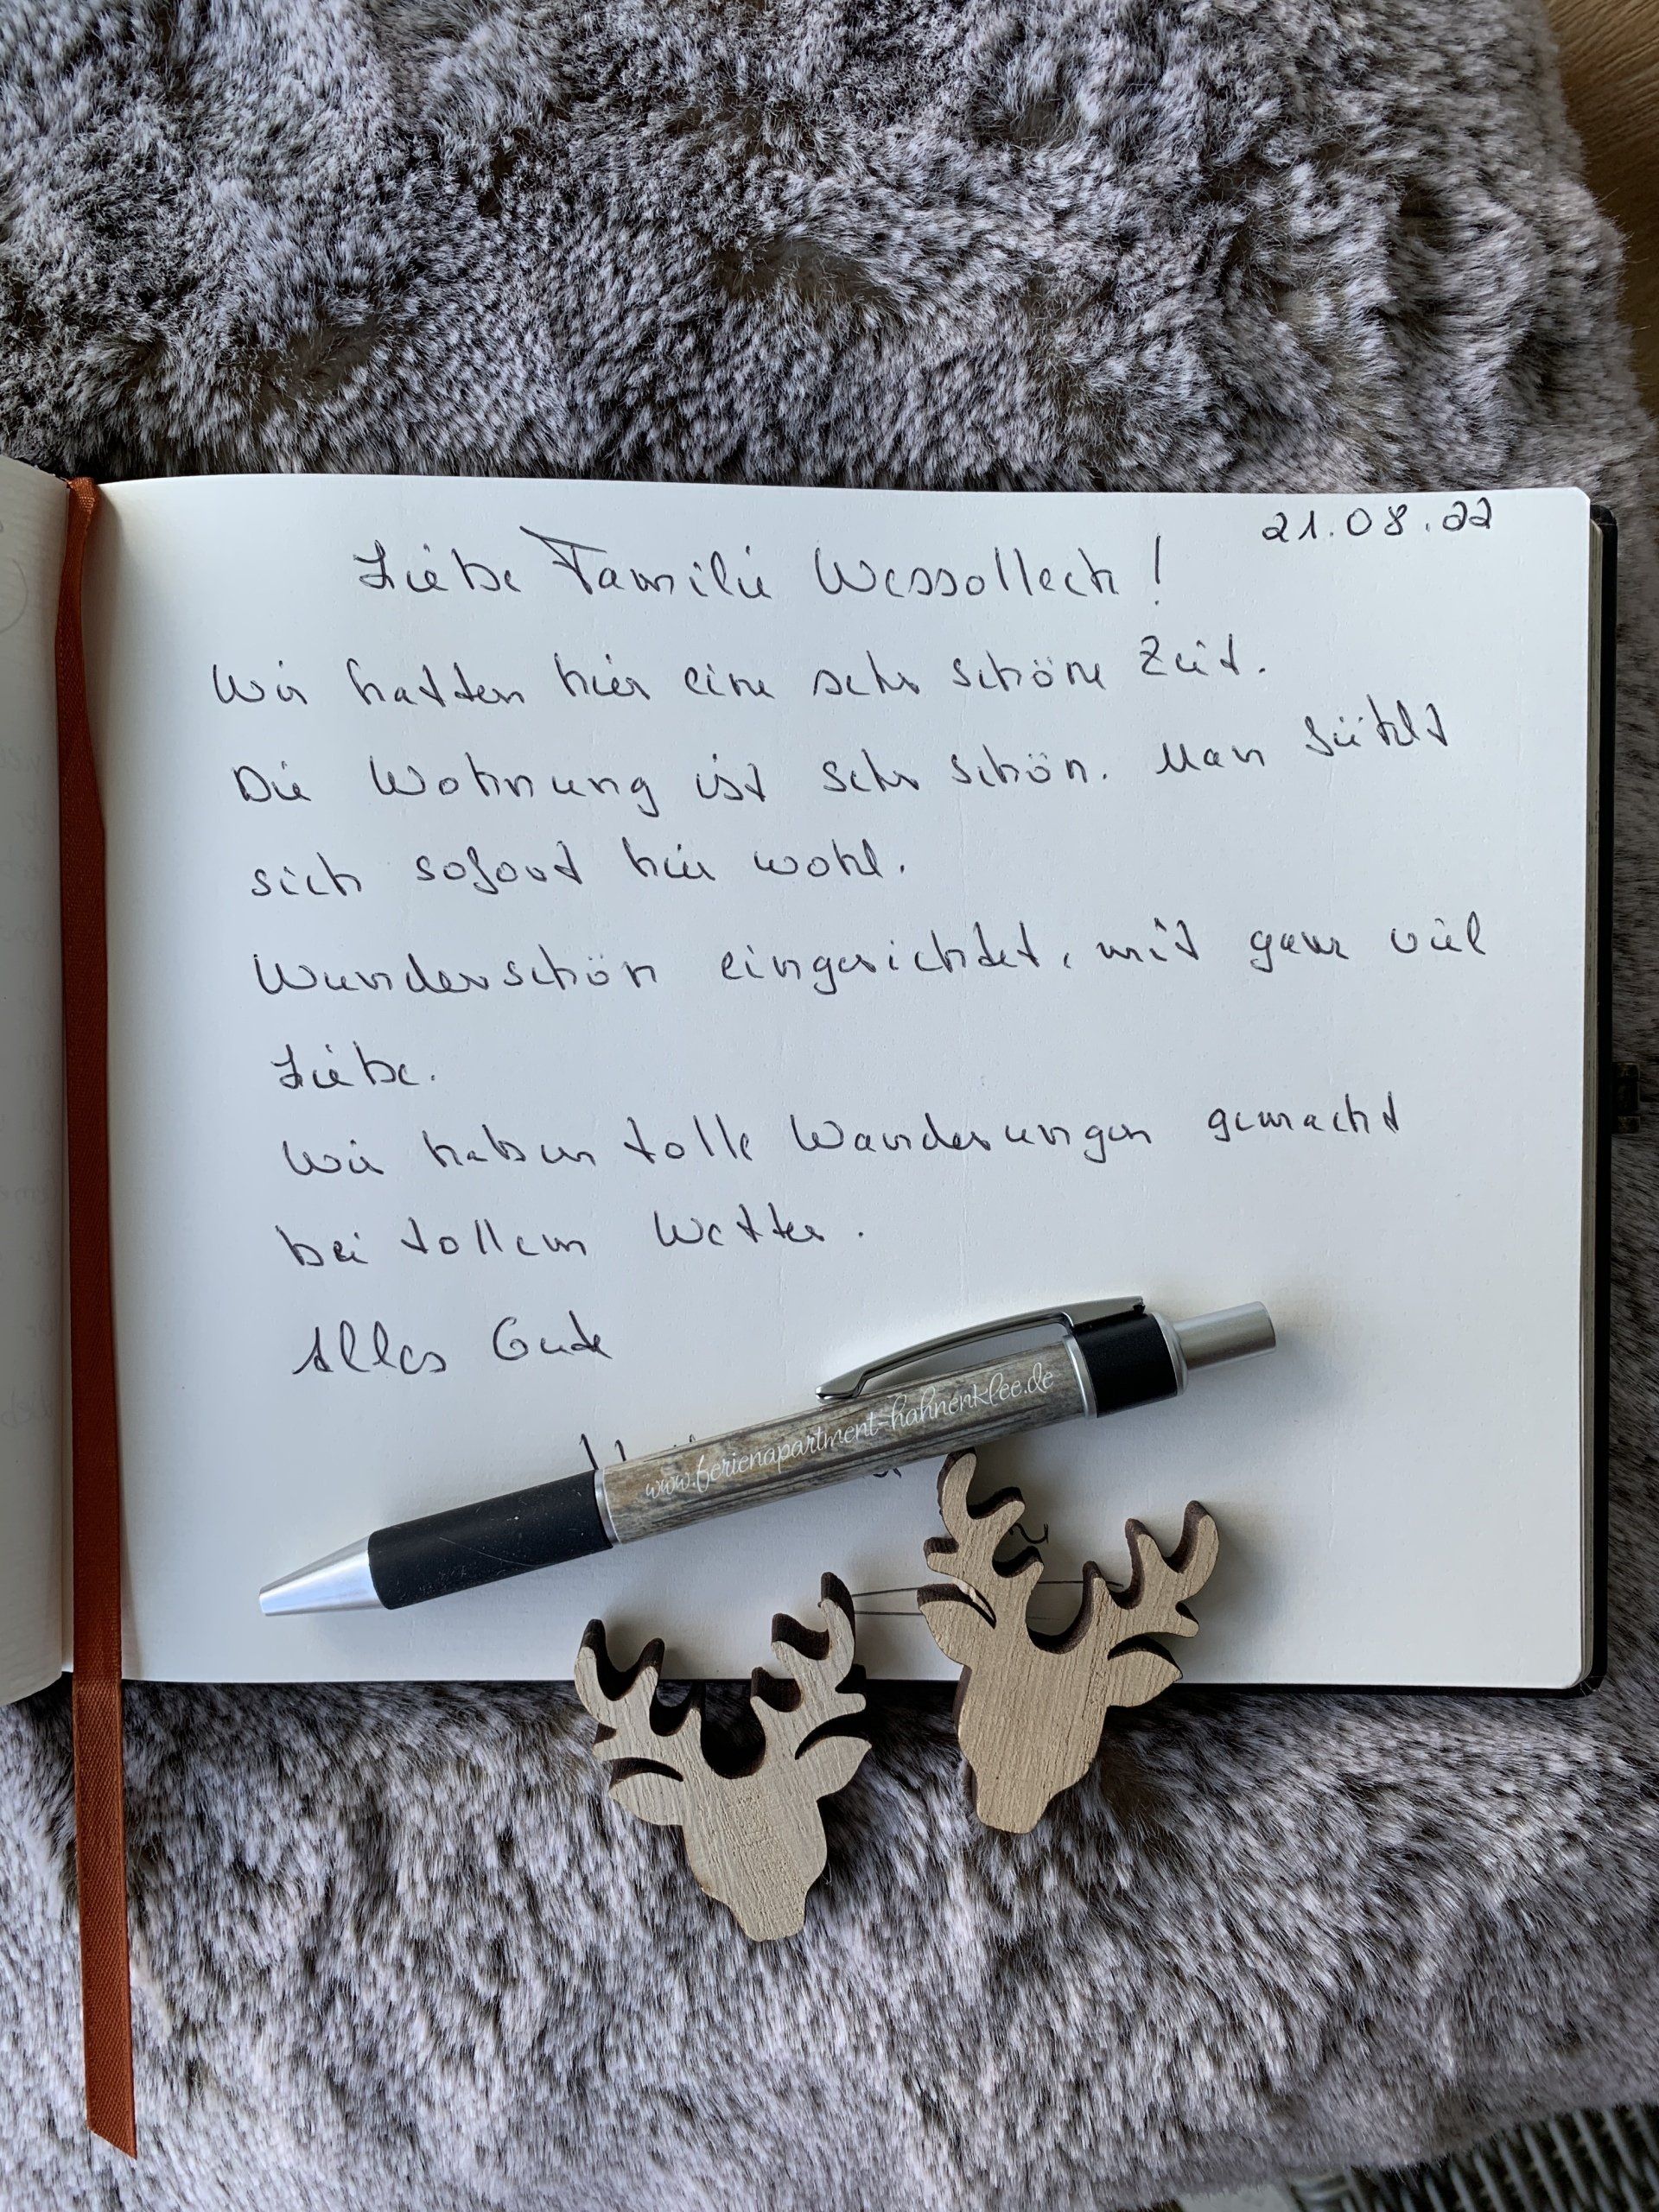 21.08.22
Liebe Familie Wessolleck!
Wir hatten hier eine sehr schöne Zeit.
Die Wohnung ist sehr schön. Man fühlt
sich sofort hier wohl.
Wunderschön eingerichtet, mit ganz viel
Liebe.
Wir haben tolle Wanderungen gemacht
bei tollem Wetter.
Alles Gute
www.ferienapartment-hahnenklee.de